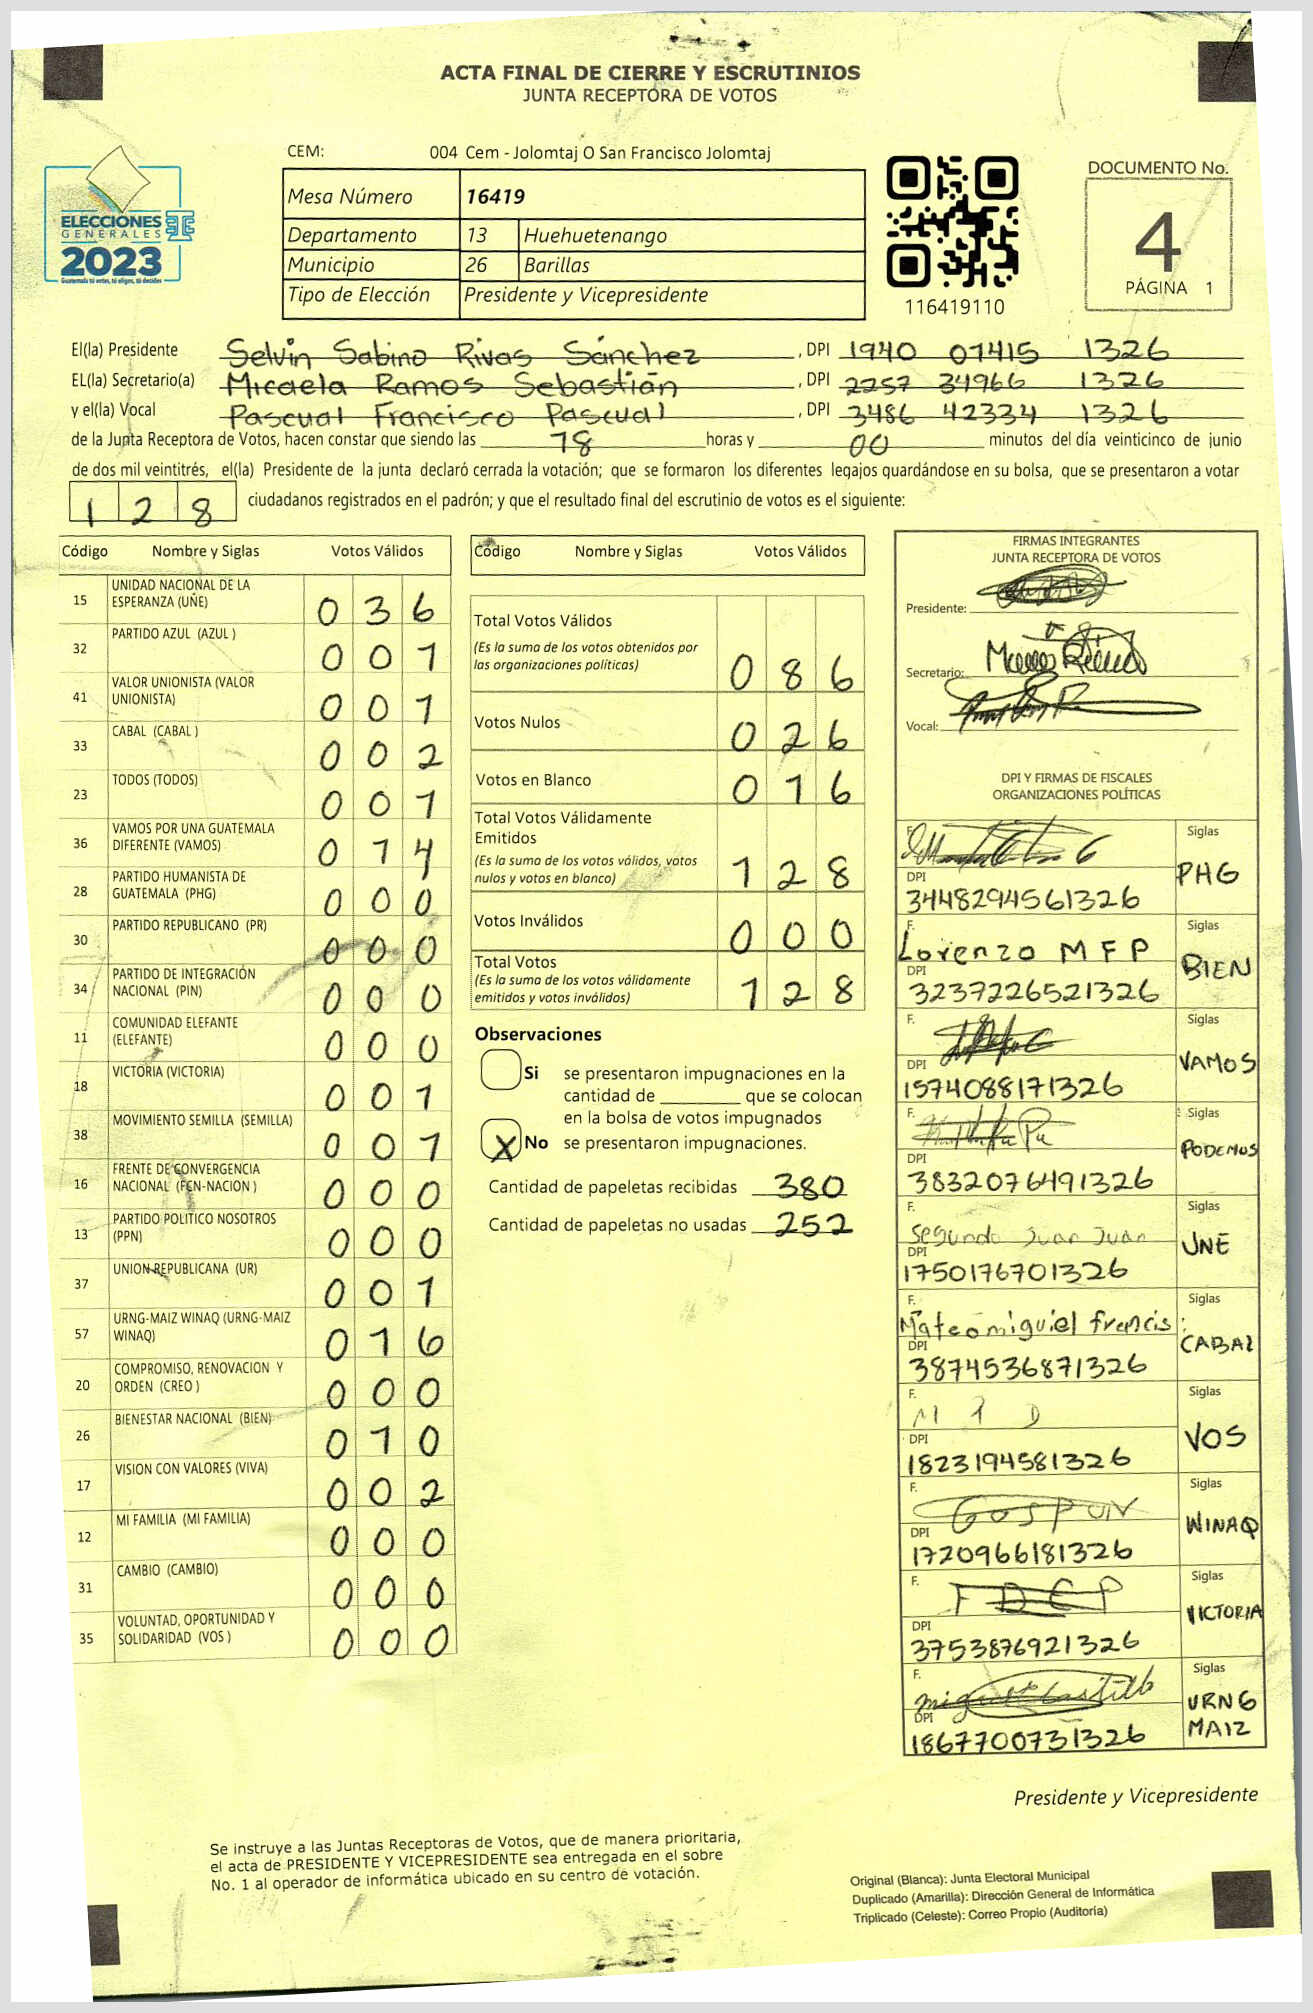 ACTA FINAL DE CIERRE Y ESCRUTINIOS
JUNTA RECEPTORA DE VOTOS
CEM: 004 Cem - Jolomtaj O San Francisco Jolomtaj
DOCUMENTO No.
4
PÁGINA 1
ELECCIONES
GENERALES
2023
Guatemala tú votas, tú eliges, tú decides
Mesa Número 16419
Departamento 13 Huehuetenango
Municipio 26 Barillas
Tipo de Elección Presidente y Vicepresidente
116419110
El(la) Presidente Selvin Sabino Rivas Sánchez, DPI 1940 07415 1326
EL(la) Secretario(a) Micaela Ramos Sebastián, DPI 2257 34966 1326
y el(la) Vocal Pascual Francisco Pascual, DPI 3486 42334 1326
de la Junta Receptora de Votos, hacen constar que siendo las 18 horas y 00 minutos del día veinticinco de junio
de dos mil veintitrés, el(la) Presidente de la junta declaró cerrada la votación; que se formaron los diferentes legajos quardándose en su bolsa, que se presentaron a votar
128 ciudadanos registrados en el padrón; y que el resultado final del escrutinio de votos es el siguiente:
Código Nombre y Siglas Votos Válidos
15 UNIDAD NACIONAL DE LA ESPERANZA (UNE) 036
32 PARTIDO AZUL (AZUL ) 001
41 VALOR UNIONISTA (VALOR UNIONISTA) 001
33 CABAL (CABAL ) 002
23 TODOS (TODOS) 001
36 VAMOS POR UNA GUATEMALA DIFERENTE (VAMOS) 014
28 PARTIDO HUMANISTA DE GUATEMALA (PHG) 000
30 PARTIDO REPUBLICANO (PR) 000
34 PARTIDO DE INTEGRACIÓN NACIONAL (PIN) 000
11 COMUNIDAD ELEFANTE (ELEFANTE) 000
18 VICTORIA (VICTORIA) 001
38 MOVIMIENTO SEMILLA (SEMILLA) 001
16 FRENTE DE CONVERGENCIA NACIONAL (FCN-NACION ) 000
13 PARTIDO POLITICO NOSOTROS (PPN) 000
37 UNION REPUBLICANA (UR) 001
57 URNG-MAIZ WINAQ (URNG-MAIZ WINAQ) 016
20 COMPROMISO, RENOVACION Y ORDEN (CREO ) 000
26 BIENESTAR NACIONAL (BIEN) 010
17 VISION CON VALORES (VIVA) 002
12 MI FAMILIA (MI FAMILIA) 000
31 CAMBIO (CAMBIO) 000
35 VOLUNTAD, OPORTUNIDAD Y SOLIDARIDAD (VOS ) 000
Código Nombre y Siglas Votos Válidos
Total Votos Válidos 086
(Es la suma de los votos obtenidos por
las organizaciones políticas)
Votos Nulos 026
Votos en Blanco 016
Total Votos Válidamente
Emitidos 128
(Es la suma de los votos válidos, votos
nulos y votos en blanco)
Votos Inválidos 000
Total Votos 128
(Es la suma de los votos válidamente
emitidos y votos inválidos)
Observaciones
Si se presentaron impugnaciones en la
cantidad de ________ que se colocan
en la bolsa de votos impugnados
X No se presentaron impugnaciones.
Cantidad de papeletas recibidas 380
Cantidad de papeletas no usadas 252
FIRMAS INTEGRANTES
JUNTA RECEPTORA DE VOTOS
Presidente:
Secretario:
Vocal:
DPI Y FIRMAS DE FISCALES
ORGANIZACIONES POLÍTICAS
F. Siglas
PHG
DPI
3448294561326
F. Lorenzo M F P Siglas
BIEN
DPI
3237226521326
F. Siglas
VAMOS
DPI
1574088171326
F. Siglas
PODEMOS
DPI
3832076491326
F. Segundo Juan Juan Siglas
UNE
DPI
1750176701326
F. Mateo miguiel francis Siglas
CABAL
DPI
3874536871326
F. Siglas
VOS
DPI
1823194581326
F. Siglas
WINAQ
DPI
1720966181326
F. F D C P Siglas
VICTORIA
DPI
3753876921326
F. miguel Castillo Siglas
URNG
MAIZ
DPI
1867700731326
Presidente y Vicepresidente
Se instruye a las Juntas Receptoras de Votos, que de manera prioritaria,
el acta de PRESIDENTE Y VICEPRESIDENTE sea entregada en el sobre
No. 1 al operador de informática ubicado en su centro de votación.
Original (Blanca): Junta Electoral Municipal
Duplicado (Amarilla): Dirección General de Informática
Triplicado (Celeste): Correo Propio (Auditoría)